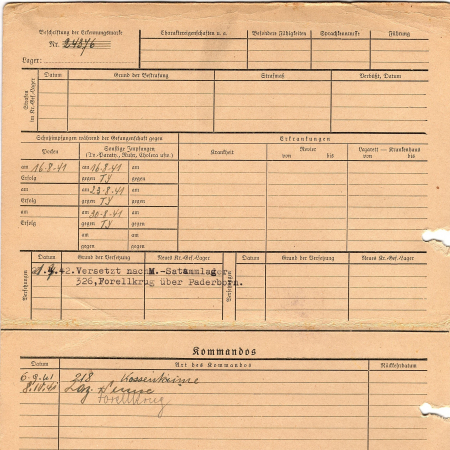 Beschriftung der Erkennungsmarke
Nr. 24876
Lager:
Charaktereigenschaften u. a.
Besondere Fähigkeiten
Sprachkenntnisse
Führung
Strafen im Kr.-Gef.-Lager
Datum
Grund der Bestrafung
Strafmaß
Verbüßt, Datum
Schutzimpfungen während der Gefangenschaft gegen
Erkrankungen
Pocken
Sonstige Impfungen
(Ty.-Paraty., Ruhr, Cholera usw.)
Krankheit
Revier
von bis
Lazarett — Krankenhaus
von bis
am 16.8.41 am 16.8.41 am
Erfolg gegen TY gegen
am am 23.8.41 am
Erfolg gegen TY gegen
am am 30.8.41 am
Erfolg gegen TY gegen
am am am
Erfolg gegen gegen
Versetzungen
Datum
Grund der Versetzung
Neues Kr.-Gef.-Lager
Versetzungen
Datum
Grund der Versetzung
Neues Kr.-Gef.-Lager
42. Versetzt nach M.-Satammlager
326, Forellkrug über Paderborn.
Kommandos
Datum
Art des Kommandos
Rückkehrdatum
6.9.41 218
8.10.41 Laz.
Forellkrug